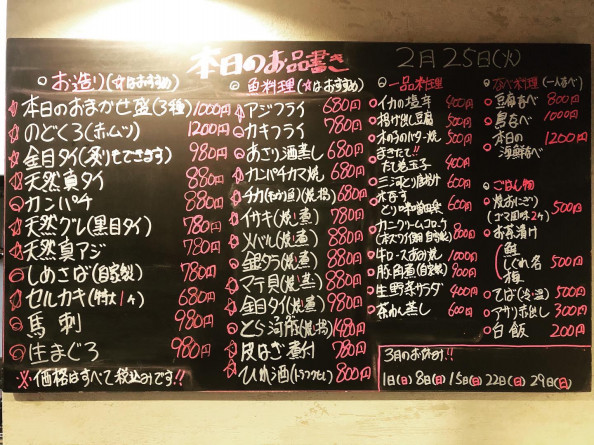 本日のお品書き
2月25日(火)
お造り(☆はおすすめ)
☆本日のおまかせ盛(3種) 1000円
☆のどくろ 1200円
☆金目タイ(炙りもできます) 980円
☆天然真タイ 880円
カンパチ 780円
☆天然グレ(黒目タイ) 780円
☆天然真アジ 780円
しめさば(自家製) 780円
☆セルカキ(特大1ヶ) 680円
馬刺 980円
生まぐろ 980円
※価格はすべて税込みです!!
魚料理(☆はおすすめ)
アジフライ 680円
カキフライ 780円
あさり酒蒸し 680円
カンパチカマ焼 780円
680円
イサキ(焼、煮) 780円
メバル(焼、煮) 880円
銀ダラ(焼、煮) 980円
マテ貝(焼、蒸) 880円
金目タイ(焼、煮) 980円
とら河豚 1480円
皮はぎ煮付 780円
ひれ酒 800円
一品料理
イカの塩辛 400円
揚げ出し豆腐 500円
木の子のバター焼 500円
まきたて!!
だし巻玉子 400円
600円
とり味噌田楽 600円
カニクリームコロッケ
800円
牛ロースあみ焼 1000円
豚角煮(自家製) 900円
生野菜サラダ 400円
茶わん蒸し 600円
なべ料理(一人前)
豆腐なべ 800円
鳥なべ 1000円
本日の
海鮮なべ 1200円
ごはん物
焼おにぎり
(ゴマ風味2ヶ) 500円
お茶漬け
鮭
しぐれ 500円
梅
そば(冷、温) 500円
アサリ赤出し 300円
白飯 200円
3月のお休み!!
1日(日) 8日(日) 15日(日) 22日(日) 29日(日)